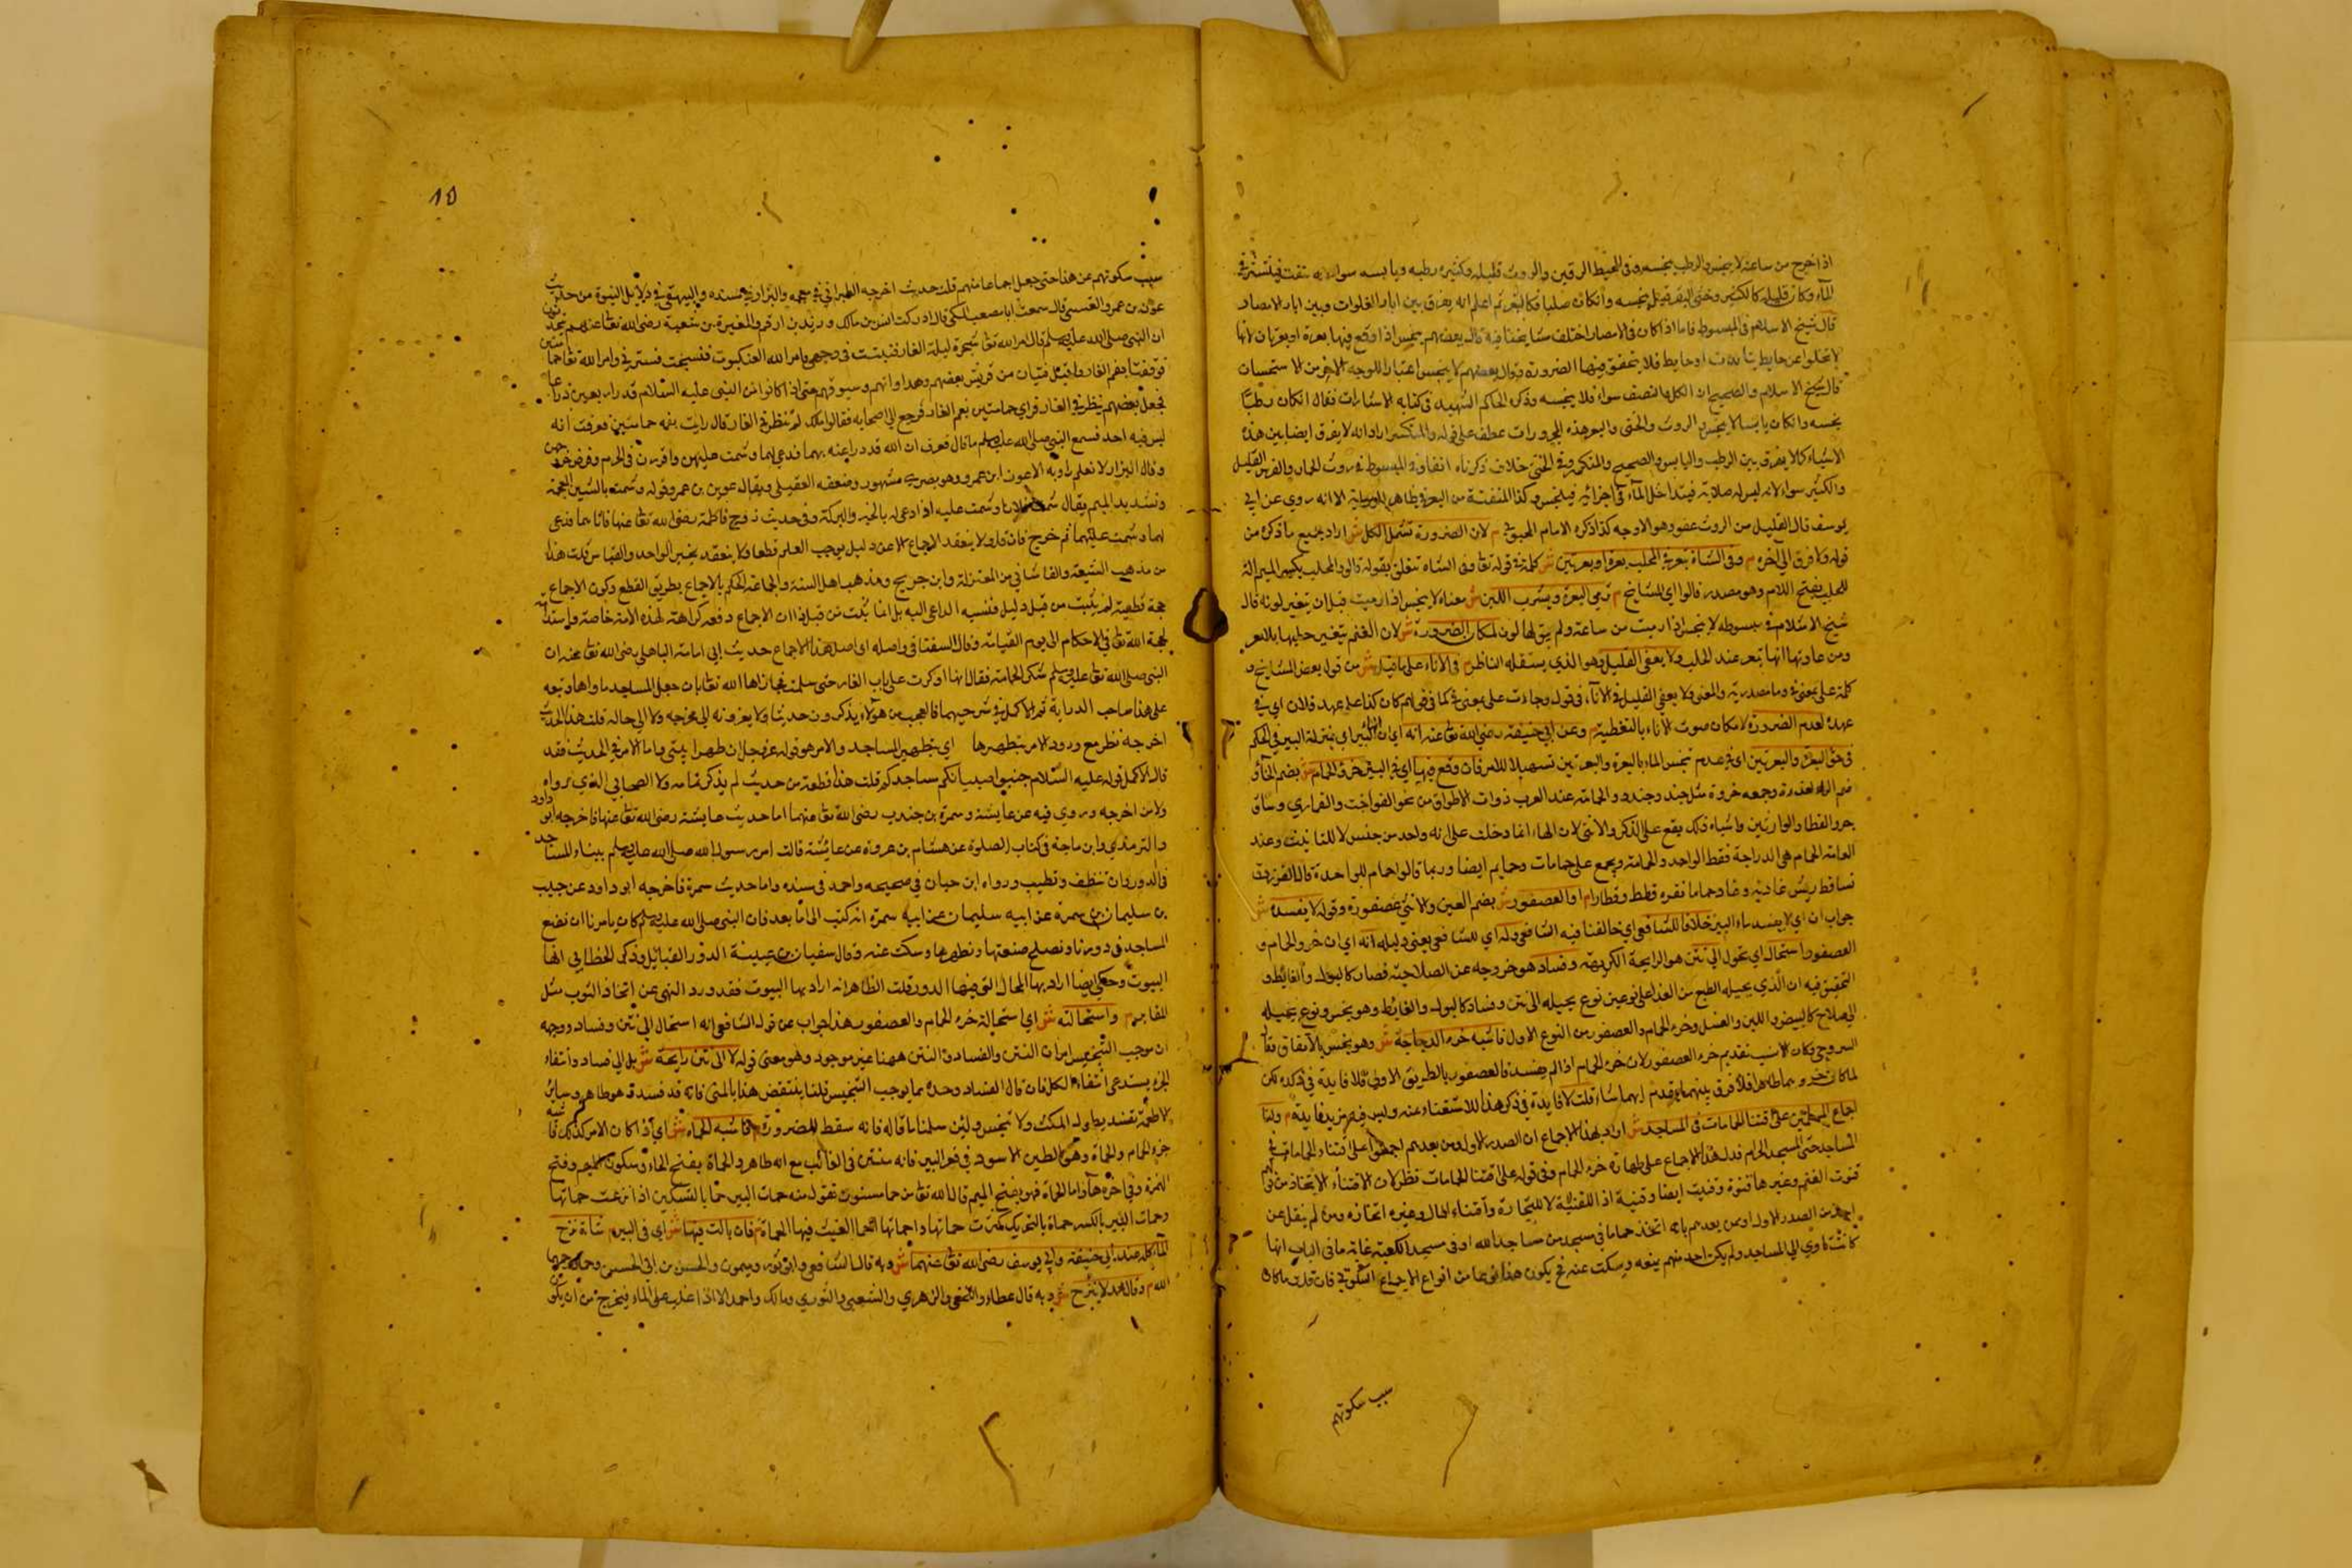 اذا خرج من ساعته لا ينجس والرطب ينجسه وفى المحيط السرقين والروث قليله وكثيره رطبه ويابسه سواء لانه يتفتت فينتشر فى
الماء وكان قليله كالكثير وخثى البقر قيل ينجسه وان كان صلبا فكالبعر ثم اعلم انه يفرق بين ابار الفلوات وبين ابار الامصار
قال شيخ الاسلام فى المبسوط فاما اذا كان فى الامصار اختلف مشايخنا فيه قال بعضهم ينجس اذا وقع فيها بعرة او بعرتان لانها
لا تخلوا عن حايط او حايط فلا تتحقق فيها الضرورة وقال بعضهم لا ينجس اعتبارا للوجه الاخر من الاستحسان
قال شيخ الاسلام والصحيح ان الكل والنصف سواء فلا ينجسه وذكر الحاكم الشهيد فى كتابه الاشارات فقال ان كان رطبا
ينجسه وان كان يابسا لا ينجس م والروث والخثى والبعر هذه المجرورات عطف على قوله والمنكسر اراد انه لا يفرق ايضا بين هذه
الاشياء كما لا يفرق بين الرطب واليابس والصحيح والمنكسر وفى الخثى خلاف ذكرناه انفا وفى المبسوط فى روث الحمار والفرس القليل
والكثير سواء لانه ليس له صلابة فيتداخل الماء فى اجزائه فينجس وكذا المتفتتة من البعر فى ظاهر الرواية الا انه روى عن ابى
يوسف قال القليل من الروث عفو وهو الاوجه كذا ذكره الامام المحبوبى م لان الضرورة تشمل الكل ش اراد بجميع ما ذكره من
قوله ولا فرق الى اخره م وفى الشاة تبعر فى المحلب بعرة او بعرتين ش كلمة فى قوله تعا وفى الشاة تتعلق بقوله قالوا والمحلب بكسر الميم الة
للحلب بفتح اللام وهو مصدر قالوا اى المشايخ م ترمى البعرة ويشرب اللبن ش معناه لا ينجس اذا رميت قبل ان يتغير لونه قال
شيخ الاسلام فى مبسوطه لا ينجس اذا رميت من ساعته ولم يبق لها لون لمكان الضرورة ش لان الغنم يتغير حليبها بالبعر
ومن عاداتها انها تبعر عند الحلب ولا يعفى القليل وهو الذى يستقله الناظر م فى الاناء على ما قيل ش من قول بعض المشايخ و
كلمة على بمعنى وما مصدرية والمعنى ولا يعفى القليل فى الاناء فى قول وجاءت على بمعنى فى كما فى قولهم كان كذا على عهد فلان اى فى
عهده لعدم الضرورة لامكان صون الاناء بالتغطية م وعن ابى حنيفة رضى الله تعا عنه انه اى ان الاناء كالبئر اى بمنزلة البير فى الحكم
فى حق البعرة والبعرتين اى فى عدم تنجس الماء بالبعرة والبعرتين تسهيلا للامر فان وقع فيها اى فى البير خرؤ الحمام ش بضم الخاء و
ضم الراء وجمعه خروءة مثل جند وجنود والحمامة عند العرب ذوات الاطواق من نحو الفواخت والقمارى وساق
حر والقطا والوارشين واشباه ذلك يقع على الذكر والانثى لان الهاء انما دخلت على انه واحد من جنس لا للتانيث وعند
العامة الحمام هى الدراجة فقط الواحد والحمامة ويجمع على حمامات وحمايم ايضا وربما قالوا حمام للواحدة قال الفرزدق
تساقط ريش غادية وغاد حماما قفرة قطط وقطارا م او العصفور ش بضم العين والانثى عصفورة وقوله لا يفسده ش
جواب ان اى لا يفسد ماء البير خلافا للشافعى اى خالفنا فيه الشافعى وله اى للشافعى يعنى دليله انه اى ان خرؤ الحمام و
العصفور استحال اى تحول الى نتن هو الرايحة الكريهة وفساد هو خروجه عن الصلاحية فصار كالبول والغايط و
التحقيق فيه ان الذى يحيله الطبع من الغذاء على نوعين نوع يحيله الى نتن وفساد كالبول والغايط وهو نجس ونوع يحيله
الى صلاح كالبيض واللبن والعسل وخرؤ الحمام والعصفور من النوع الاول فاشبه خرء الدجاجة ش وهو نجس بالاتفاق قال
السروجى وكان الانسب تقديم خرء العصفور لان خرء الحمام اذا لم يفسد فالعصفور بالطريق الاولى فلا فايدة فى ذكره لكن
لما كان خرؤهما طاهرا فلا فرق بينهما قدم ايهما شاء قلت لا فايدة فى ذكر هذا للاستغناء عنه وليس فيه مزيد فايدة م ولنا
اجماع المسلمين على اقتناء الحمامات فى المساجد ش اراد بهذا الاجماع ان الصدر الاول ومن بعدهم اجمعوا على اقتناء الحمامات فى
المساجد حتى المسجد الحرام فدل هذا الاجماع على طهارة خرء الحمام وفى قوله على اقتناء الحمامات نظر لان الاقتناء الاتخاذ من قولهم
قنوت الغنم وغيرها قنوة وقنيت ايضا وقنية اذا اقتنيته لا للتجارة واقتناء المال وغيره اتخاذه ومن لم ينقل عن
احد من الصدر الاول او من بعدهم بانه اتخذ حماما فى مسجد من مساجد الله او فى مسجد الكعبة غاية ما فى الباب انها
كانت تاوى الى المساجد ولم يكن احد منهم يمنعه ويسكت عنه فح يكون هذا نوعا من انواع الاجماع السكوتى فان قلت ما كان
سبب سكوتهم
١٥
سبب سكوتهم عن هذا حتى جعل اجماعا منهم قلت حديث اخرجه الطبرانى فى معجمه والبزار فى مسنده والبيهقى فى دلايل النبوة من حديث
عون بن عمرو القيسى قال سمعت ابا مصعب المكى قال ادركت انس بن مالك وزيد بن ارقم والمغيرة بن شعبة رضى الله تعا عنهم يتحدثون
ان النبى صلى الله عليه وسلم قال امر الله تعا شجرة ليلة الغار فنبتت فى وجهى وامر الله العنكبوت فنسجت فسترتنى وامر الله تعا حمامتين
فوقفتا بفم الغار واقبل فتيان من قريش بعضهم وهراواتهم وسيوفهم حتى اذا كانوا من النبى عليه السلام قدر اربعين ذراعا
فجعل بعضهم ينظر فى الغار فراى حمامتين بفم الغار فرجع الى اصحابه فقالوا مالك لم تنظر فى الغار قال رايت بفمه حمامتين فعرفت انه
ليس فيه احد فسمع النبى صلى الله عليه وسلم ما قال فعرف ان الله قد درا عنه بهما فدعى لهما وشمت عليهن واقررن فى الحرم وفرض جزاءهن
وقال البزار لا نعلم رواه الا عون ابن عمرو وهو بصرى مشهور وضعفه العقيلى ويقال عوين بن عمرو قوله وشمت بالشين المعجمة
وتشديد الميم يقال شمت فلانا وشمت عليه اذا دعى له بالخير والبركة وفى حديث زوج فاطمة رضى الله تعا عنها فاتاهما فدعى
لهما وشمت عليهما ثم خرج فان قلت لا ينعقد الاجماع الا عن دليل يوجب العلم قطعا ولا ينعقد بخبر الواحد والقياس قلت هذا
من مذهب الشيعة والقاشانى من المعتزلة وابن جريج ومذهب اهل السنة والجماعة الحكم بالاجماع بطريق القطع وكون الاجماع
حجة قطعية لم يثبت من قبل دليل فنسبه الداعى اليه بل انما يثبت من قبل ان الاجماع دفعه كرامة لهذه الامة خاصة
لحجة الله تعا فى الاحكام الى يوم القيامة وقال السغناقى واصله اى اصل هذا الاجماع حديث ابى امامة الباهلى رضى الله تعا عنه ان
النبى صلى الله تعا عليه وسلم شكر الحمامة فقال انها اوكرت على باب الغار حتى سلمت فجازاها الله تعا بان جعل المساجد ماواها وتبعه
على هذا صاحب الدراية ثم الاكمل فى شرحيهما فالعجب من هولاء يذكرون حديثا ولا يعزونه الى مخرجه ولا الى حاله قلت هذا الحديث
اخرجه نظر م مع ورود الامر بتطهيرها اى بتطهير المساجد والامر هو قوله عز وجل ان طهرا بيتى واما الامر فى الحديث فقد
قال الاكمل قوله عليه السلام جنبوا صبيانكم مساجدكم قلت هذا قطعة من حديث لم يذكر تمامه ولا الصحابى الذى رواه
ولا من اخرجه وروى فيه عن عايشة وسمرة بن جندب رضى الله تعا عنهما اما حديث عايشة رضى الله تعا عنها فاخرجه ابو داود
والترمذى وابن ماجة فى كتاب الصلوة عن هشام بن عروة عن عايشة قالت امر رسول الله صلى الله عليه وسلم ببناء المساجد
فى الدور وان تنظف وتطيب ورواه ابن حبان فى صحيحه واحمد فى مسنده واما حديث سمرة فاخرجه ابو داود عن حبيب
بن سليمان بن سمرة عن ابيه سليمان عن ابيه سمرة انه كتب الى اما بعد فان النبى صلى الله عليه وسلم كان يامرنا ان نضع
المساجد فى دورنا ونصلح صنعتها ونطهرها وسكت عنه وقال سفيان بن عيينة الدور القبائل وذكر الخطابى انها
البيوت وحكى ايضا اراد بها المحال التى فيها الدور قلت الظاهر انه اراد بها البيوت فقد ورد النهى عن اتخاذ البيوت مثل
المقابر م واستحالته ش اى استحالة خرء الحمام والعصفور هذا جواب عن قول الشافعى انه استحال الى نتن وفساد ووجهه
ان موجب التنجيس امران النتن والفساد والنتن ههنا غير موجود وهو معنى قوله لا الى نتن رايحة ش بل الى فساد وانتفاء
الجزء يستدعى انتفاء الكل فان قال الفساد وحده مما يوجب التنجيس قلنا ينتقض هذا بالمنى فانه قد فسد وهو طاهر وساير
الاطعمة تفسد بطول المكث ولا تنجس ولئن سلمنا ما قاله فانه سقط للضرورة م فاشبه الحماة ش اى اذا كان الامر كذلك فاشبه
خرء الحمام والحماة وهو الطين الاسود فى قعر البير فانه منتن فى الغالب مع انه طاهر والحماة بفتح الحاء وسكون الميم وفتح
الهمزة وفى اخره هاء واما الحماة فهو بفتح الميم قال الله تعا من حما مسنون تقول منه حمات البير حما بالتسكين اذا نزعت حماتها
وحمات البير بالكسر حماة بالتحريك كثرت حماتها واحماتها احماء القيت فيها الحماة م فان بالت فيها ش اى فى البير م شاة نزح
الماء كله عند ابى حنيفة وابى يوسف رضى الله تعا عنهما ش وبه قال الشافعى وابو ثور وميمون والحسن بن ابى الحسن وحماد رحمهم
الله م وقال محمد لا ينزح ش وبه قال عطاء والنخعى والزهرى والشعبى والثورى ومالك واحمد الا اذا غلب على الماء فيخرج من ان يكون